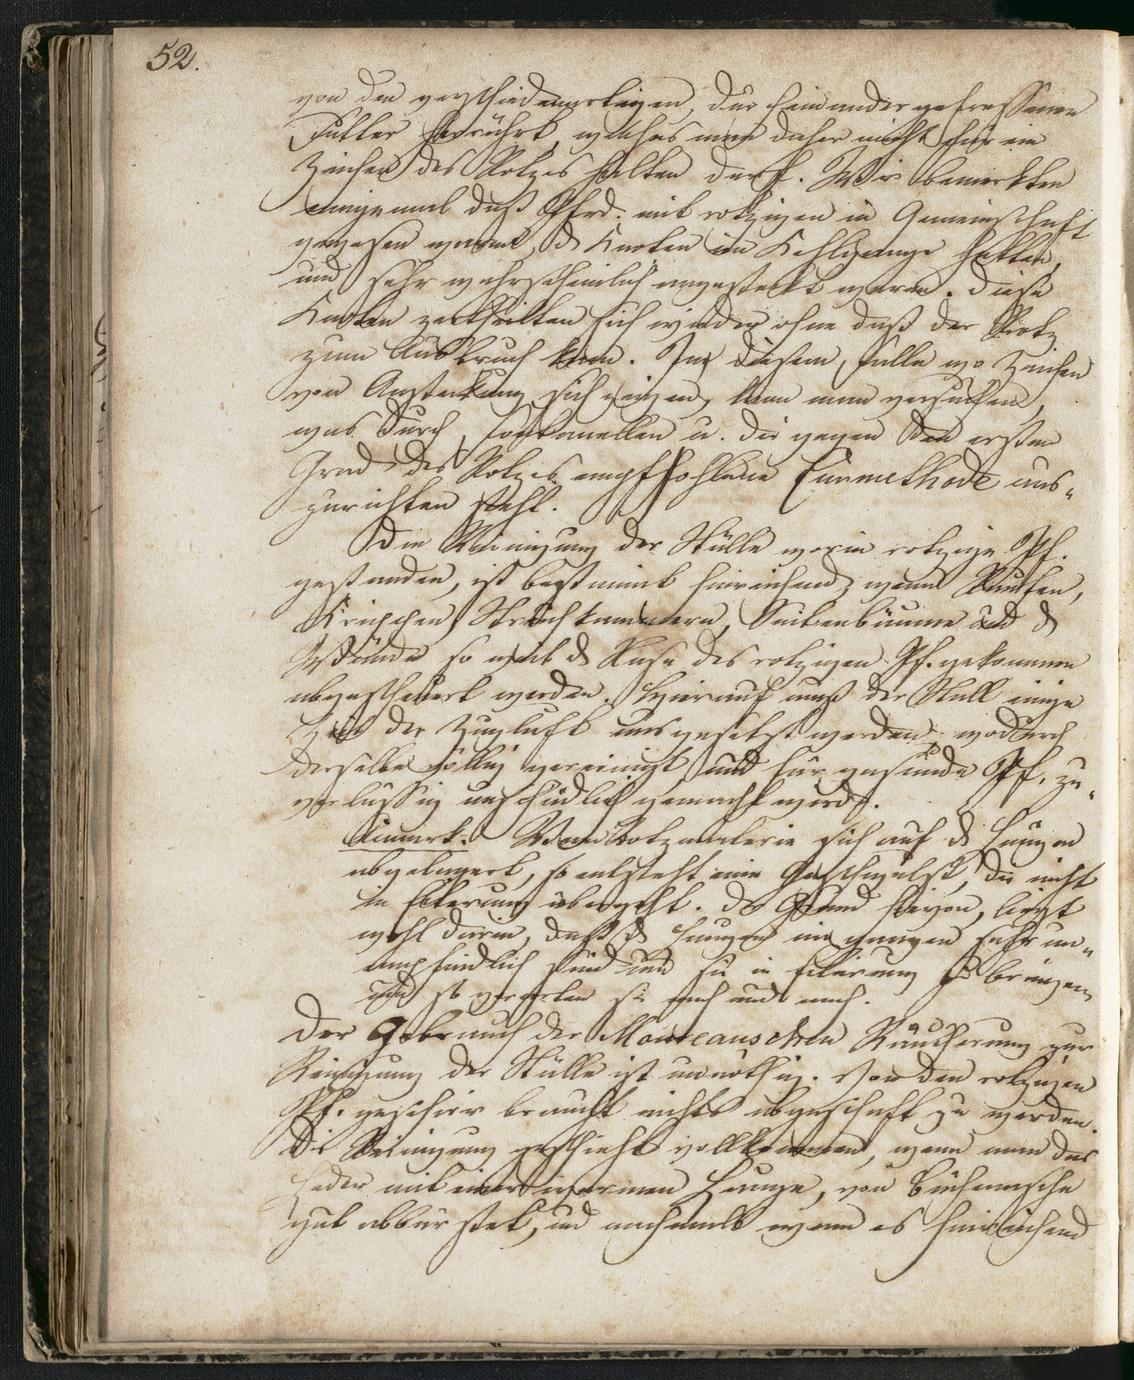 52.
von den verschiedenartigen, durcheinander gefressenen
Futter herrührt, welches man daher nicht für ein
Zeichen des Rotzes halten darf. Wir bemerkten
einigemal daß Pferd. mit rotzigen in Gemeinschaft
gewesen waren, d Knoten im Kehlgange hatten,
und sehr wahrscheinlich angesteckt waren. diese
Knoten zertheilten sich wieder ohne daß der Rotz
zum Ausbruch kam. In diesem Falle wo Zeichen
von Ansteckung sich zeigen, kann man versuchen,
was durch Fontanellen u. die gegen den ersten
Grad des Rotzes empfohlene Curmethode aus-
zurichten steht.
Die Reinigung der Ställe worin rotzige Pf.
gestanden, ist bestimmt hinreichend, wenn Raufen,
Krippen, Seitenbäume und d
Wände so weit d Nase des rotzigen Pf. gekommen
abgescheuert werden. Hierauf muß der Stall einige
Zeit der Zugluft ausgesetzt werden, wodurch
derselbe völlig gereinigt und für gesunde Pf. zu-
verlässig unschädlich gemacht wird.
Anmerk: Wenn Rotzmaterie sich auf d Lungen
abgelagert, so entsteht eine Geschwulst, die nicht
in Eiterung übergeht. Der Grund hievon, liegt
wohl darin, daß d Lungen im ganzen sehr un-
empfindlich sind um sie in Eiterung zu bringen
und so nach und nach.
Der Gebrauch der Morveauschen Räucherung zur
Reinigung der Ställe ist unnöthig. Von den rotzigen
Pf. geschirr braucht nichts abgeschaft zu werden.
Die Reinigung geschieht vollkommen, wenn man das
Leder mit einer warmen Lauge, von Buchenasche
gut abbürstet, und nochmals wenn es hinreichend